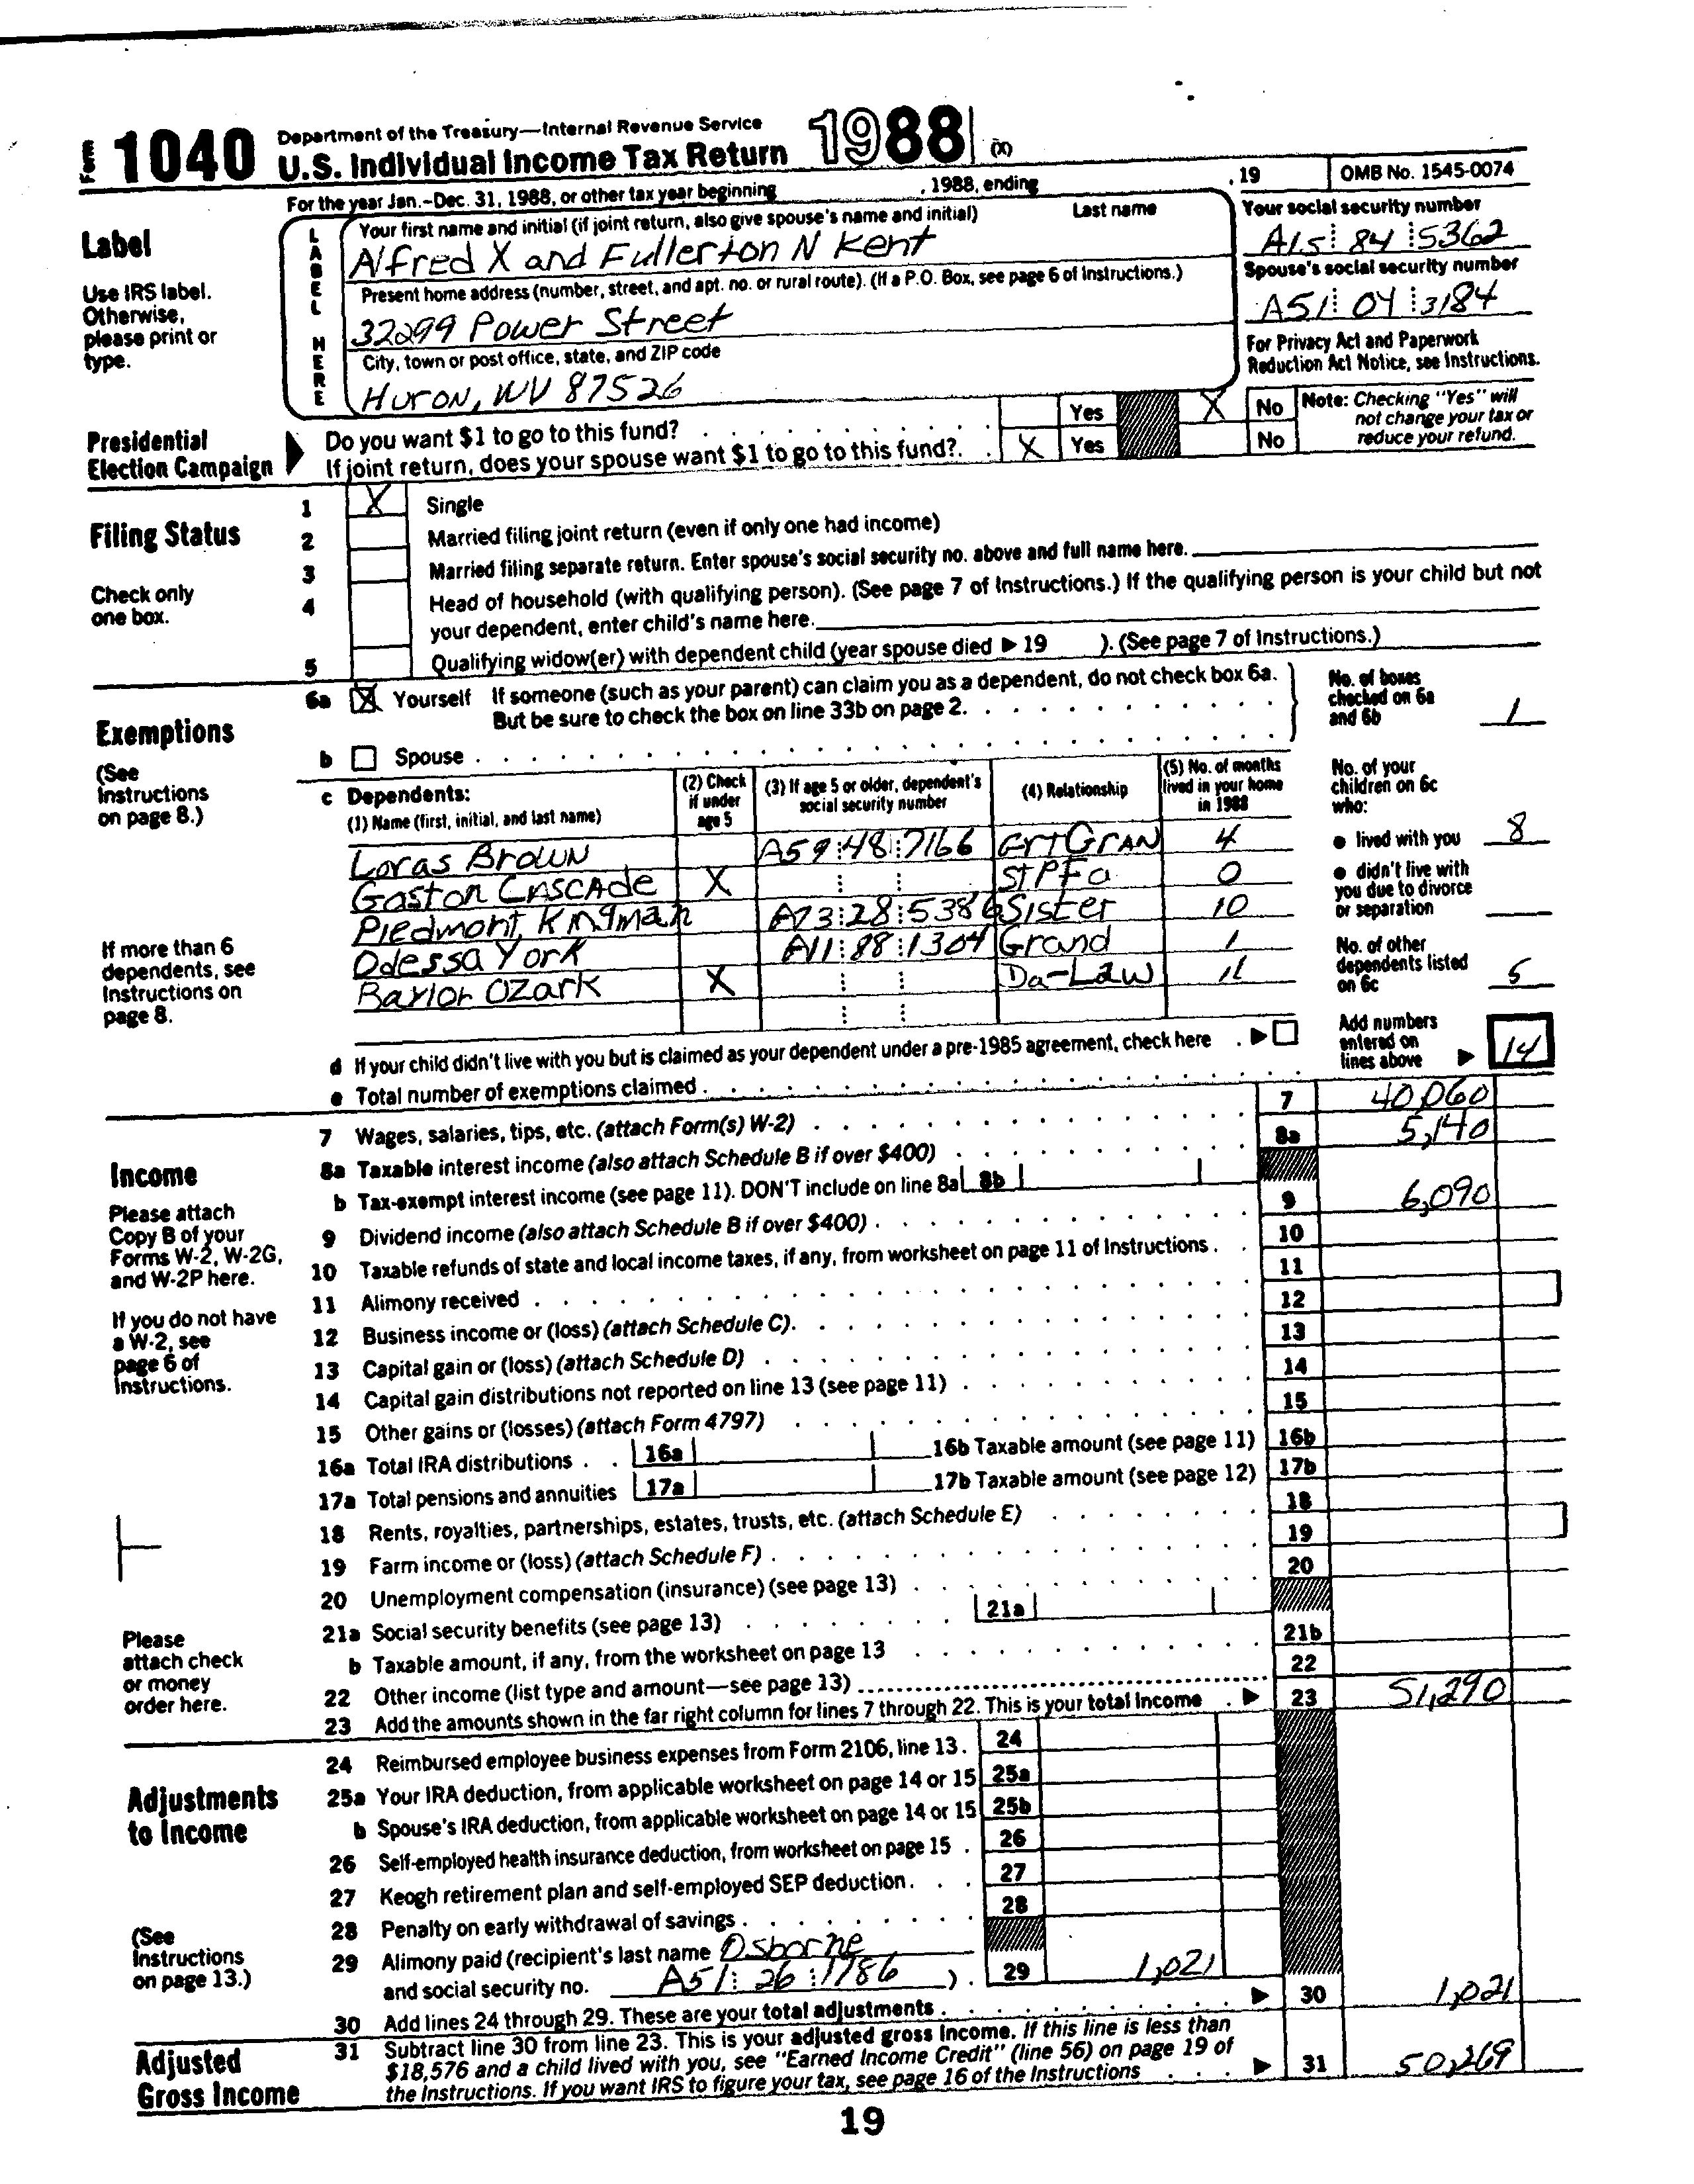 Form 1040 Department of the Treasury—Internal Revenue Service
U.S. Individual Income Tax Return 1988 (X)
For the year Jan.–Dec. 31, 1988, or other tax year beginning , 1988, ending , 19 OMB No. 1545-0074
Label
Use IRS label. Otherwise, please print or type.
LABEL HERE
Your first name and initial (if joint return, also give spouse's name and initial) Last name
Alfred X and Fullerton N Kent
Your social security number
A15 84 5362
Present home address (number, street, and apt. no. or rural route). (If a P.O. Box, see page 6 of Instructions.)
32299 Power Street
Spouse's social security number
A51 04 3184
City, town or post office, state, and ZIP code
Huron, WV 87526
For Privacy Act and Paperwork Reduction Act Notice, see Instructions.
Presidential Election Campaign
Do you want $1 to go to this fund? . . . Yes X No
If joint return, does your spouse want $1 to go to this fund? . X Yes No
Note: Checking "Yes" will not change your tax or reduce your refund.
Filing Status
Check only one box.
1 X Single
2 Married filing joint return (even if only one had income)
3 Married filing separate return. Enter spouse's social security no. above and full name here.
4 Head of household (with qualifying person). (See page 7 of Instructions.) If the qualifying person is your child but not
your dependent, enter child's name here.
5 Qualifying widow(er) with dependent child (year spouse died ▶ 19 ). (See page 7 of Instructions.)
Exemptions
(See Instructions on page 8.)
6a X Yourself If someone (such as your parent) can claim you as a dependent, do not check box 6a.
But be sure to check the box on line 33b on page 2.
b Spouse
No. of boxes checked on 6a and 6b 1
c Dependents:
(1) Name (first, initial, and last name)
(2) Check if under age 5
(3) If age 5 or older, dependent's social security number
(4) Relationship
(5) No. of months lived in your home in 1988
Loras Brown A59 48 7166 GrtGran 4
Gaston Cascade X StPFa 0
Piedmont Kngman A73 28 5386 Sister 10
Odessa York A11 88 1304 Grand 1
Baylor Ozark X Da-Law 11
If more than 6 dependents, see Instructions on page 8.
No. of your children on 6c who:
● lived with you 8
● didn't live with you due to divorce or separation
No. of other dependents listed on 6c 5
d If your child didn't live with you but is claimed as your dependent under a pre-1985 agreement, check here . ▶
e Total number of exemptions claimed
Add numbers entered on lines above ▶ 14
Income
Please attach Copy B of your Forms W-2, W-2G, and W-2P here.
If you do not have a W-2, see page 6 of Instructions.
Please attach check or money order here.
7 Wages, salaries, tips, etc. (attach Form(s) W-2) 7 40,060
8a Taxable interest income (also attach Schedule B if over $400) 8a 5,140
b Tax-exempt interest income (see page 11). DON'T include on line 8a 8b
9 Dividend income (also attach Schedule B if over $400) 9 6,090
10 Taxable refunds of state and local income taxes, if any, from worksheet on page 11 of Instructions 10
11 Alimony received 11
12 Business income or (loss) (attach Schedule C) 12
13 Capital gain or (loss) (attach Schedule D) 13
14 Capital gain distributions not reported on line 13 (see page 11) 14
15 Other gains or (losses) (attach Form 4797) 15
16a Total IRA distributions 16a 16b Taxable amount (see page 11) 16b
17a Total pensions and annuities 17a 17b Taxable amount (see page 12) 17b
18 Rents, royalties, partnerships, estates, trusts, etc. (attach Schedule E) 18
19 Farm income or (loss) (attach Schedule F) 19
20 Unemployment compensation (insurance) (see page 13) 20
21a Social security benefits (see page 13) 21a
b Taxable amount, if any, from the worksheet on page 13 21b
22 Other income (list type and amount—see page 13) 22
23 Add the amounts shown in the far right column for lines 7 through 22. This is your total income . ▶ 23 51,290
Adjustments to Income
(See Instructions on page 13.)
24 Reimbursed employee business expenses from Form 2106, line 13 . 24
25a Your IRA deduction, from applicable worksheet on page 14 or 15 25a
b Spouse's IRA deduction, from applicable worksheet on page 14 or 15 25b
26 Self-employed health insurance deduction, from worksheet on page 15 . 26
27 Keogh retirement plan and self-employed SEP deduction 27
28 Penalty on early withdrawal of savings 28
29 Alimony paid (recipient's last name Osborne
and social security no. A51 26 1786 ) . 29 1,021
30 Add lines 24 through 29. These are your total adjustments ▶ 30 1,021
Adjusted Gross Income
31 Subtract line 30 from line 23. This is your adjusted gross income. If this line is less than
$18,576 and a child lived with you, see "Earned Income Credit" (line 56) on page 19 of
the Instructions. If you want IRS to figure your tax, see page 16 of the Instructions ▶ 31 50,269
19